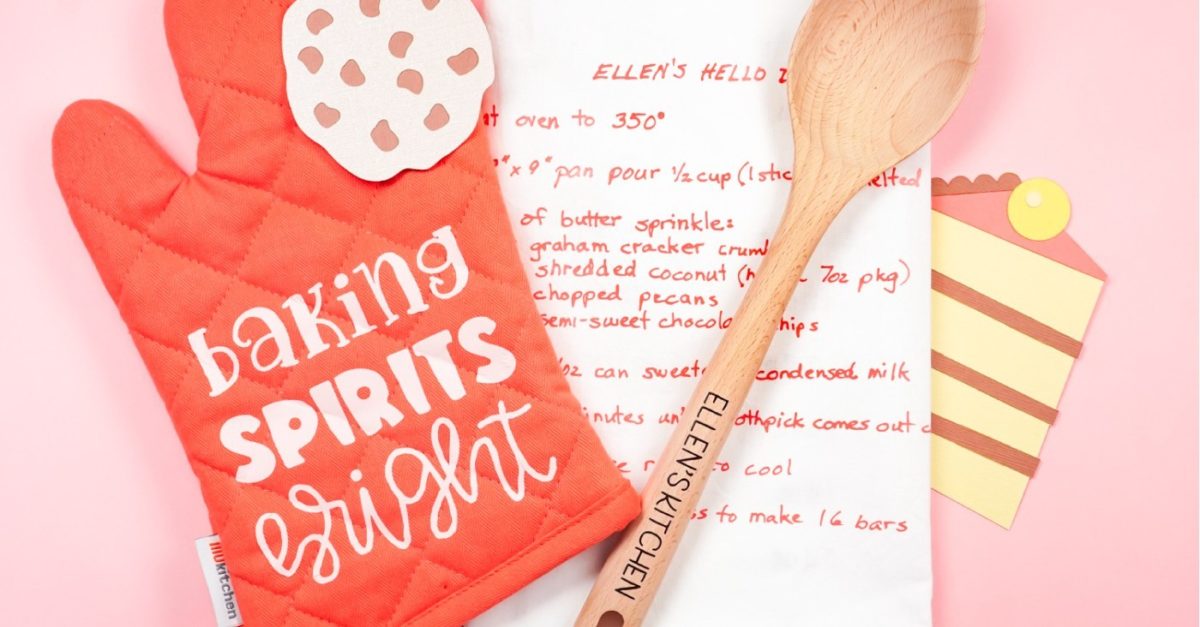 baking
SPIRITS
bright
mukitchen
ELLEN'S HELLO
oven to 350°
9" pan pour ½ cup (1 stick melted
of butter sprinkle:
graham cracker crumb
shredded coconut 7oz pkg)
chopped pecans
semi-sweet chocola hips
oz can sweet condensed milk
minutes un oothpick comes out
to cool
to make 16 bars
ELLEN'S KITCHEN